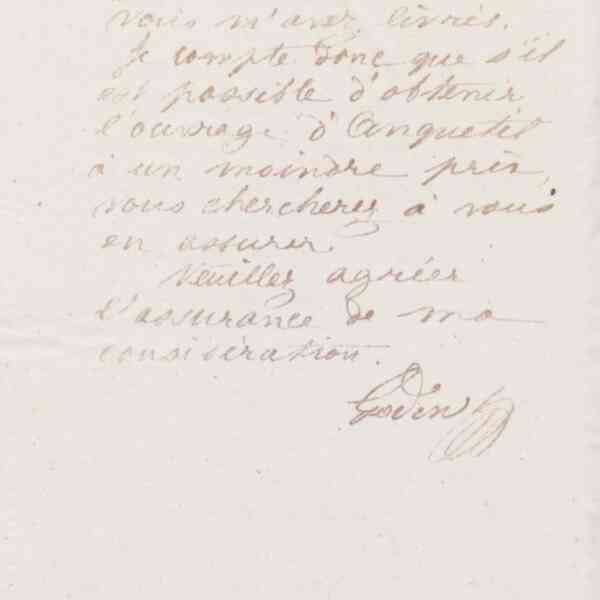 vous m'avez livrés.
Je compte donc que s'il
est possible d'obtenir
l'ouvrage d'Anquetil
à un moindre prix,
vous chercherez à vous
en assurer.
Veuillez agréer
l'assurance de ma
considération.
Godin